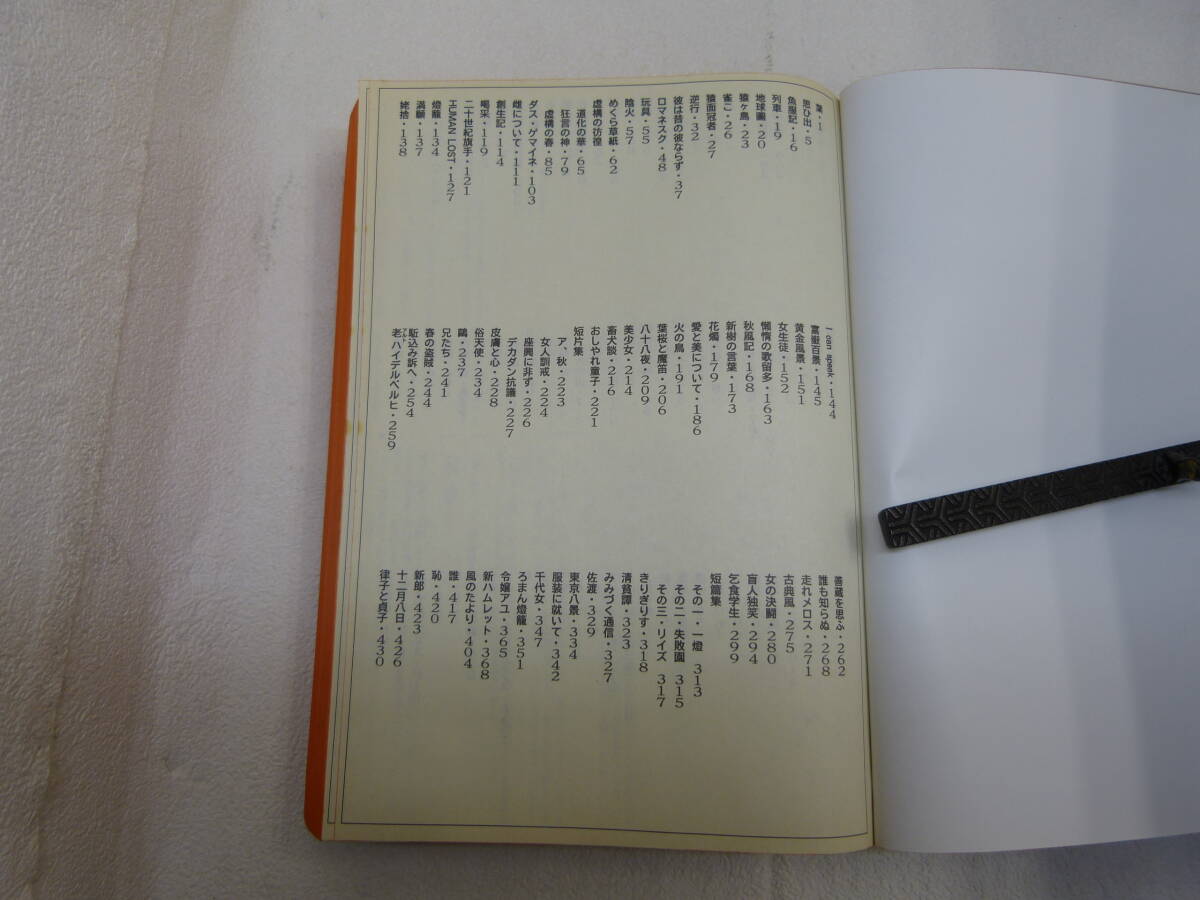 葉・1
思ひ出・5
魚服記・16
列車・19
地球圖・20
猿ヶ島・23
雀こ・26
猿面冠者・27
逆行・32
彼は昔の彼ならず・37
ロマネスク・48
玩具・55
陰火・57
めくら草紙・62
虚構の彷徨
道化の華・65
狂言の神・79
虚構の春・85
ダス・ゲマイネ・103
雌について・111
創生記・114
喝采・119
二十世紀旗手・121
HUMAN LOST・127
燈籠・134
満願・137
姥捨・138
I can speak・144
富嶽百景・145
黄金風景・151
女生徒・152
懶惰の歌留多・163
秋風記・168
新樹の言葉・173
花燭・179
愛と美について・186
火の鳥・191
葉桜と魔笛・206
八十八夜・209
美少女・214
畜犬談・216
おしゃれ童子・221
短片集
ア、秋・223
女人訓戒・224
座興に非ず・226
デカダン抗議・227
皮膚と心・228
俗天使・234
鷗・237
兄たち・241
春の盗賊・244
駈込み訴へ・254
老ハイデルベルヒ・259
善蔵を思ふ・262
誰も知らぬ・268
走れメロス・271
古典風・275
女の決闘・280
盲人独笑・294
乞食学生・299
短篇集
その一・一燈 313
その二・失敗園 315
その三・リイズ 317
きりぎりす・318
清貧譚・323
みみづく通信・327
佐渡・329
東京八景・334
服装に就いて・342
千代女・347
ろまん燈籠・351
令嬢アユ・365
新ハムレット・368
風のたより・404
誰・417
恥・420
新郎・423
十二月八日・426
律子と貞子・430